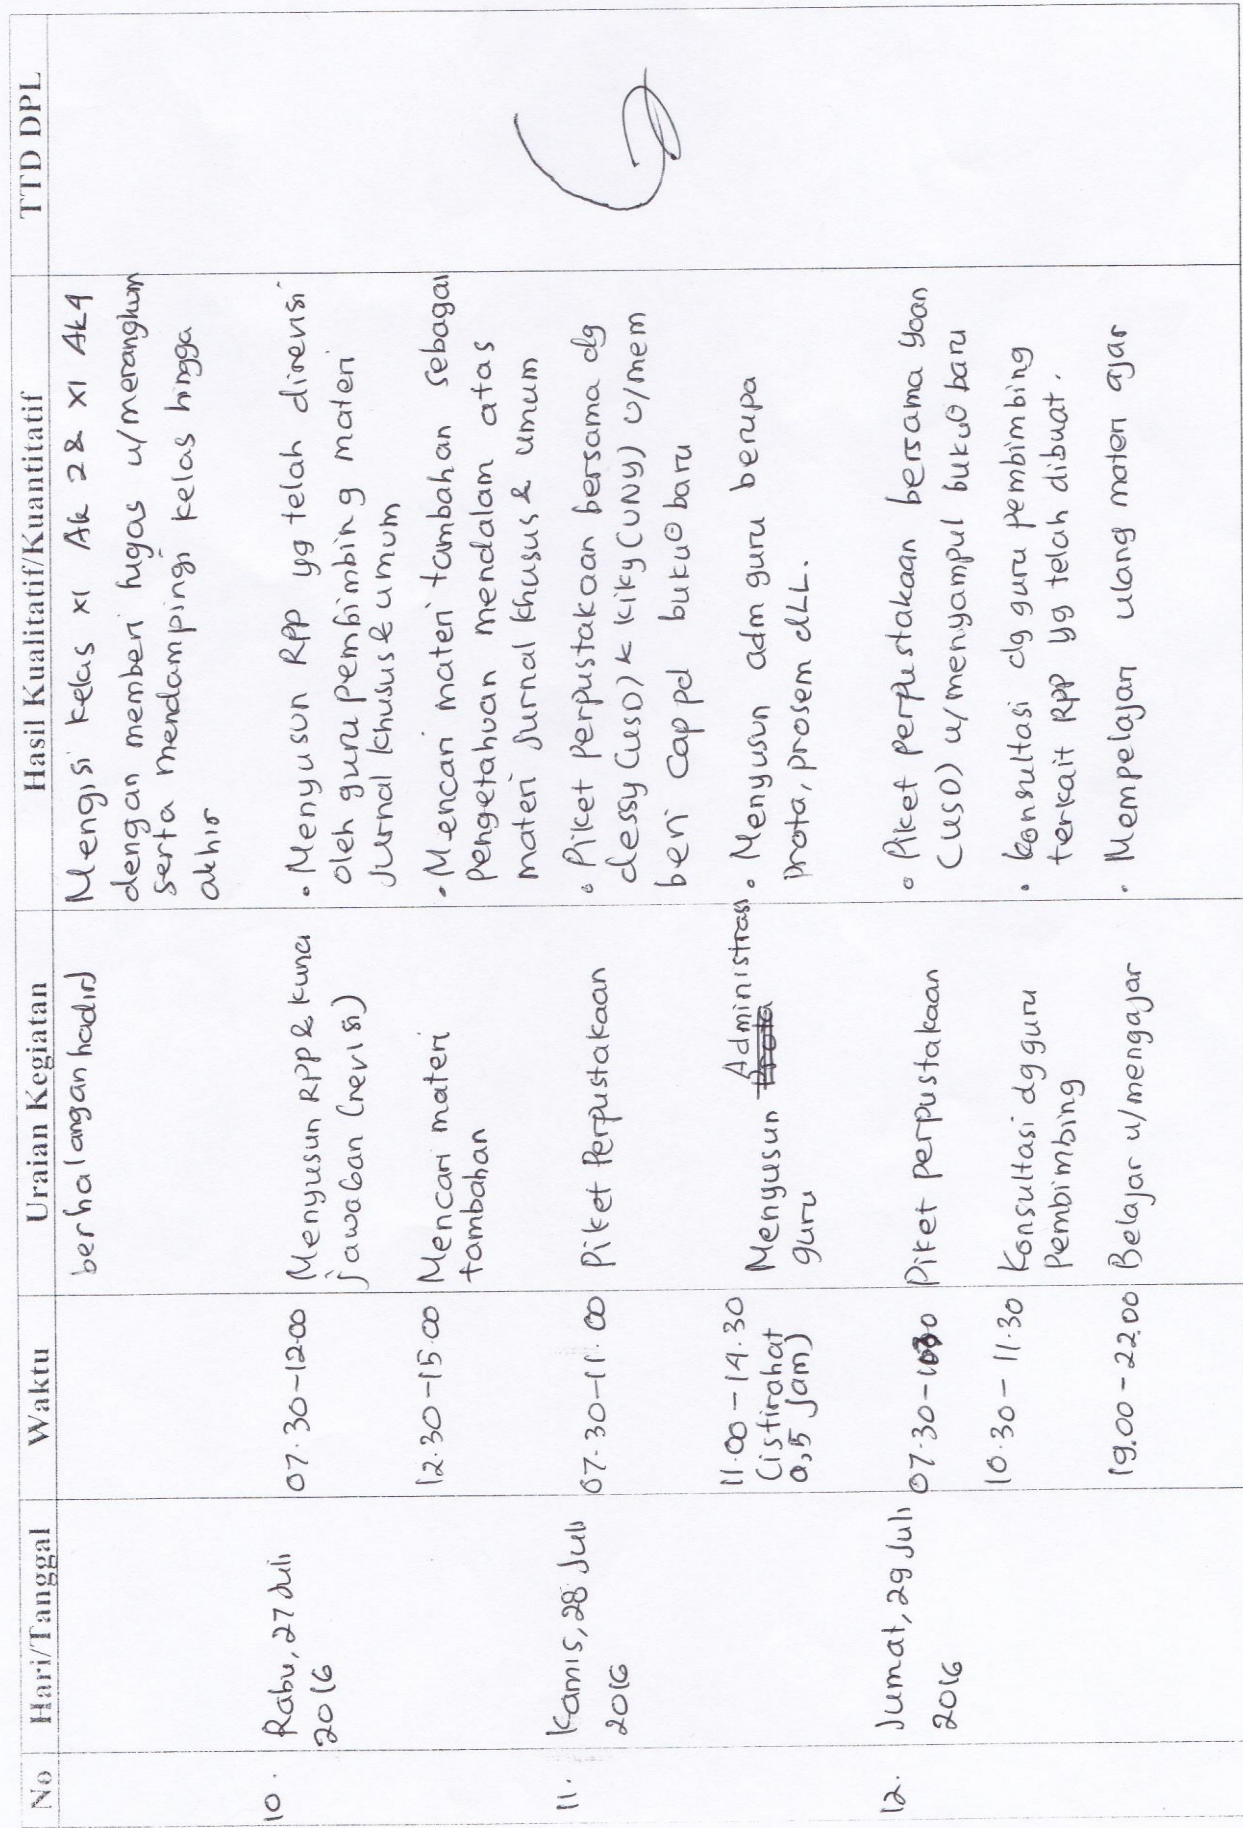 No Hari/Tanggal Waktu Uraian Kegiatan Hasil Kualitatif/Kuantitatif TTD DPL
berhalangan hadir)
Mengisi kelas XI Ak 2 & XI Ak 4
dengan memberi tugas u/merangkum
serta mendampingi kelas hingga
akhir
10. Rabu, 27 Juli
2016
07.30-12.00
Menyusun RPP & kunci
jawaban (revisi)
• Menyusun RPP yg telah direvisi
oleh guru pembimbing materi
Jurnal khusus & umum
12.30-15.00
Mencari materi
tambahan
• Mencari materi tambahan sebagai
Pengetahuan mendalam atas
materi jurnal khusus & umum
11. Kamis, 28 Juli
2016
07.30-11.00
Piket Perpustakaan
• Piket Perpustakaan bersama dg
dessy (USD) & Kiky (UNY) u/mem
beri cap pd buku² baru
11.00-14.30
(istirahat
0,5 jam)
Menyusun Administrasi
guru
• Menyusun adm guru berupa
prota, prosem dLL.
12. Jumat, 29 Juli
2016
07.30-
Piket perpustakaan
• Piket perpustakaan bersama Yoan
(USD) u/menyampul buku² baru
10.30-11.30
Konsultasi dg guru
Pembimbing
• Konsultasi dg guru pembimbing
terkait RPP yg telah dibuat.
19.00-22.00
Belajar u/mengajar
• Mempelajari ulang materi ajar